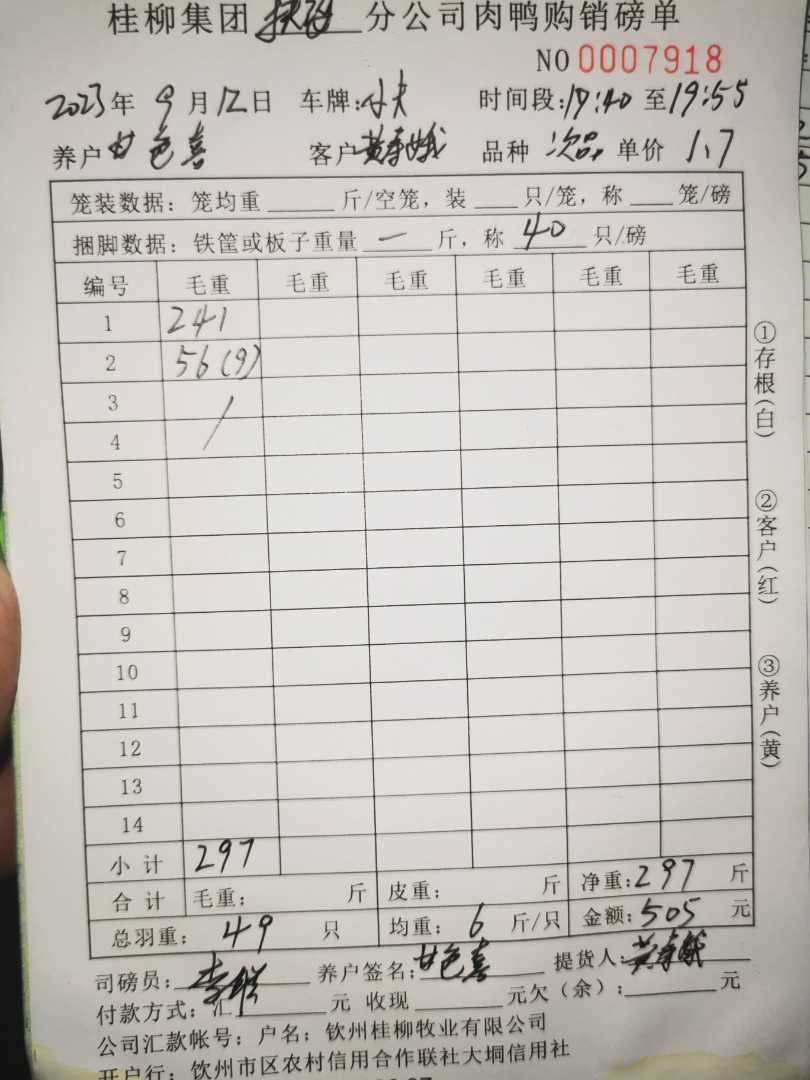 桂柳集团 分公司肉鸭购销磅单
NO 0007918
2023年 9月12日 车牌: 时间段:17:40 至19:55
养户 甘色喜 客户 黄 娥 品种 次品 单价 1.7
笼装数据：笼均重 斤/空笼，装 只/笼，称 笼/磅
捆脚数据：铁筐或板子重量 一 斤，称 40 只/磅
编号 毛重 毛重 毛重 毛重 毛重 毛重
1 241
2 56(9)
3 /
4
5
6
7
8
9
10
11
12
13
14
小计 297
合计 毛重： 斤 皮重： 斤 净重:297 斤
总羽重： 49 只 均重： 6 斤/只 金额:505 元
司磅员: 李 养户签名:甘色喜 提货人:黄 娥
付款方式：汇 元 收现 元欠（余）: 元
公司汇款帐号：户名；钦州桂柳牧业有限公司
开户行：钦州市区农村信用合作联社大垌信用社
①存根(白)
②客户(红)
③养户(黄)